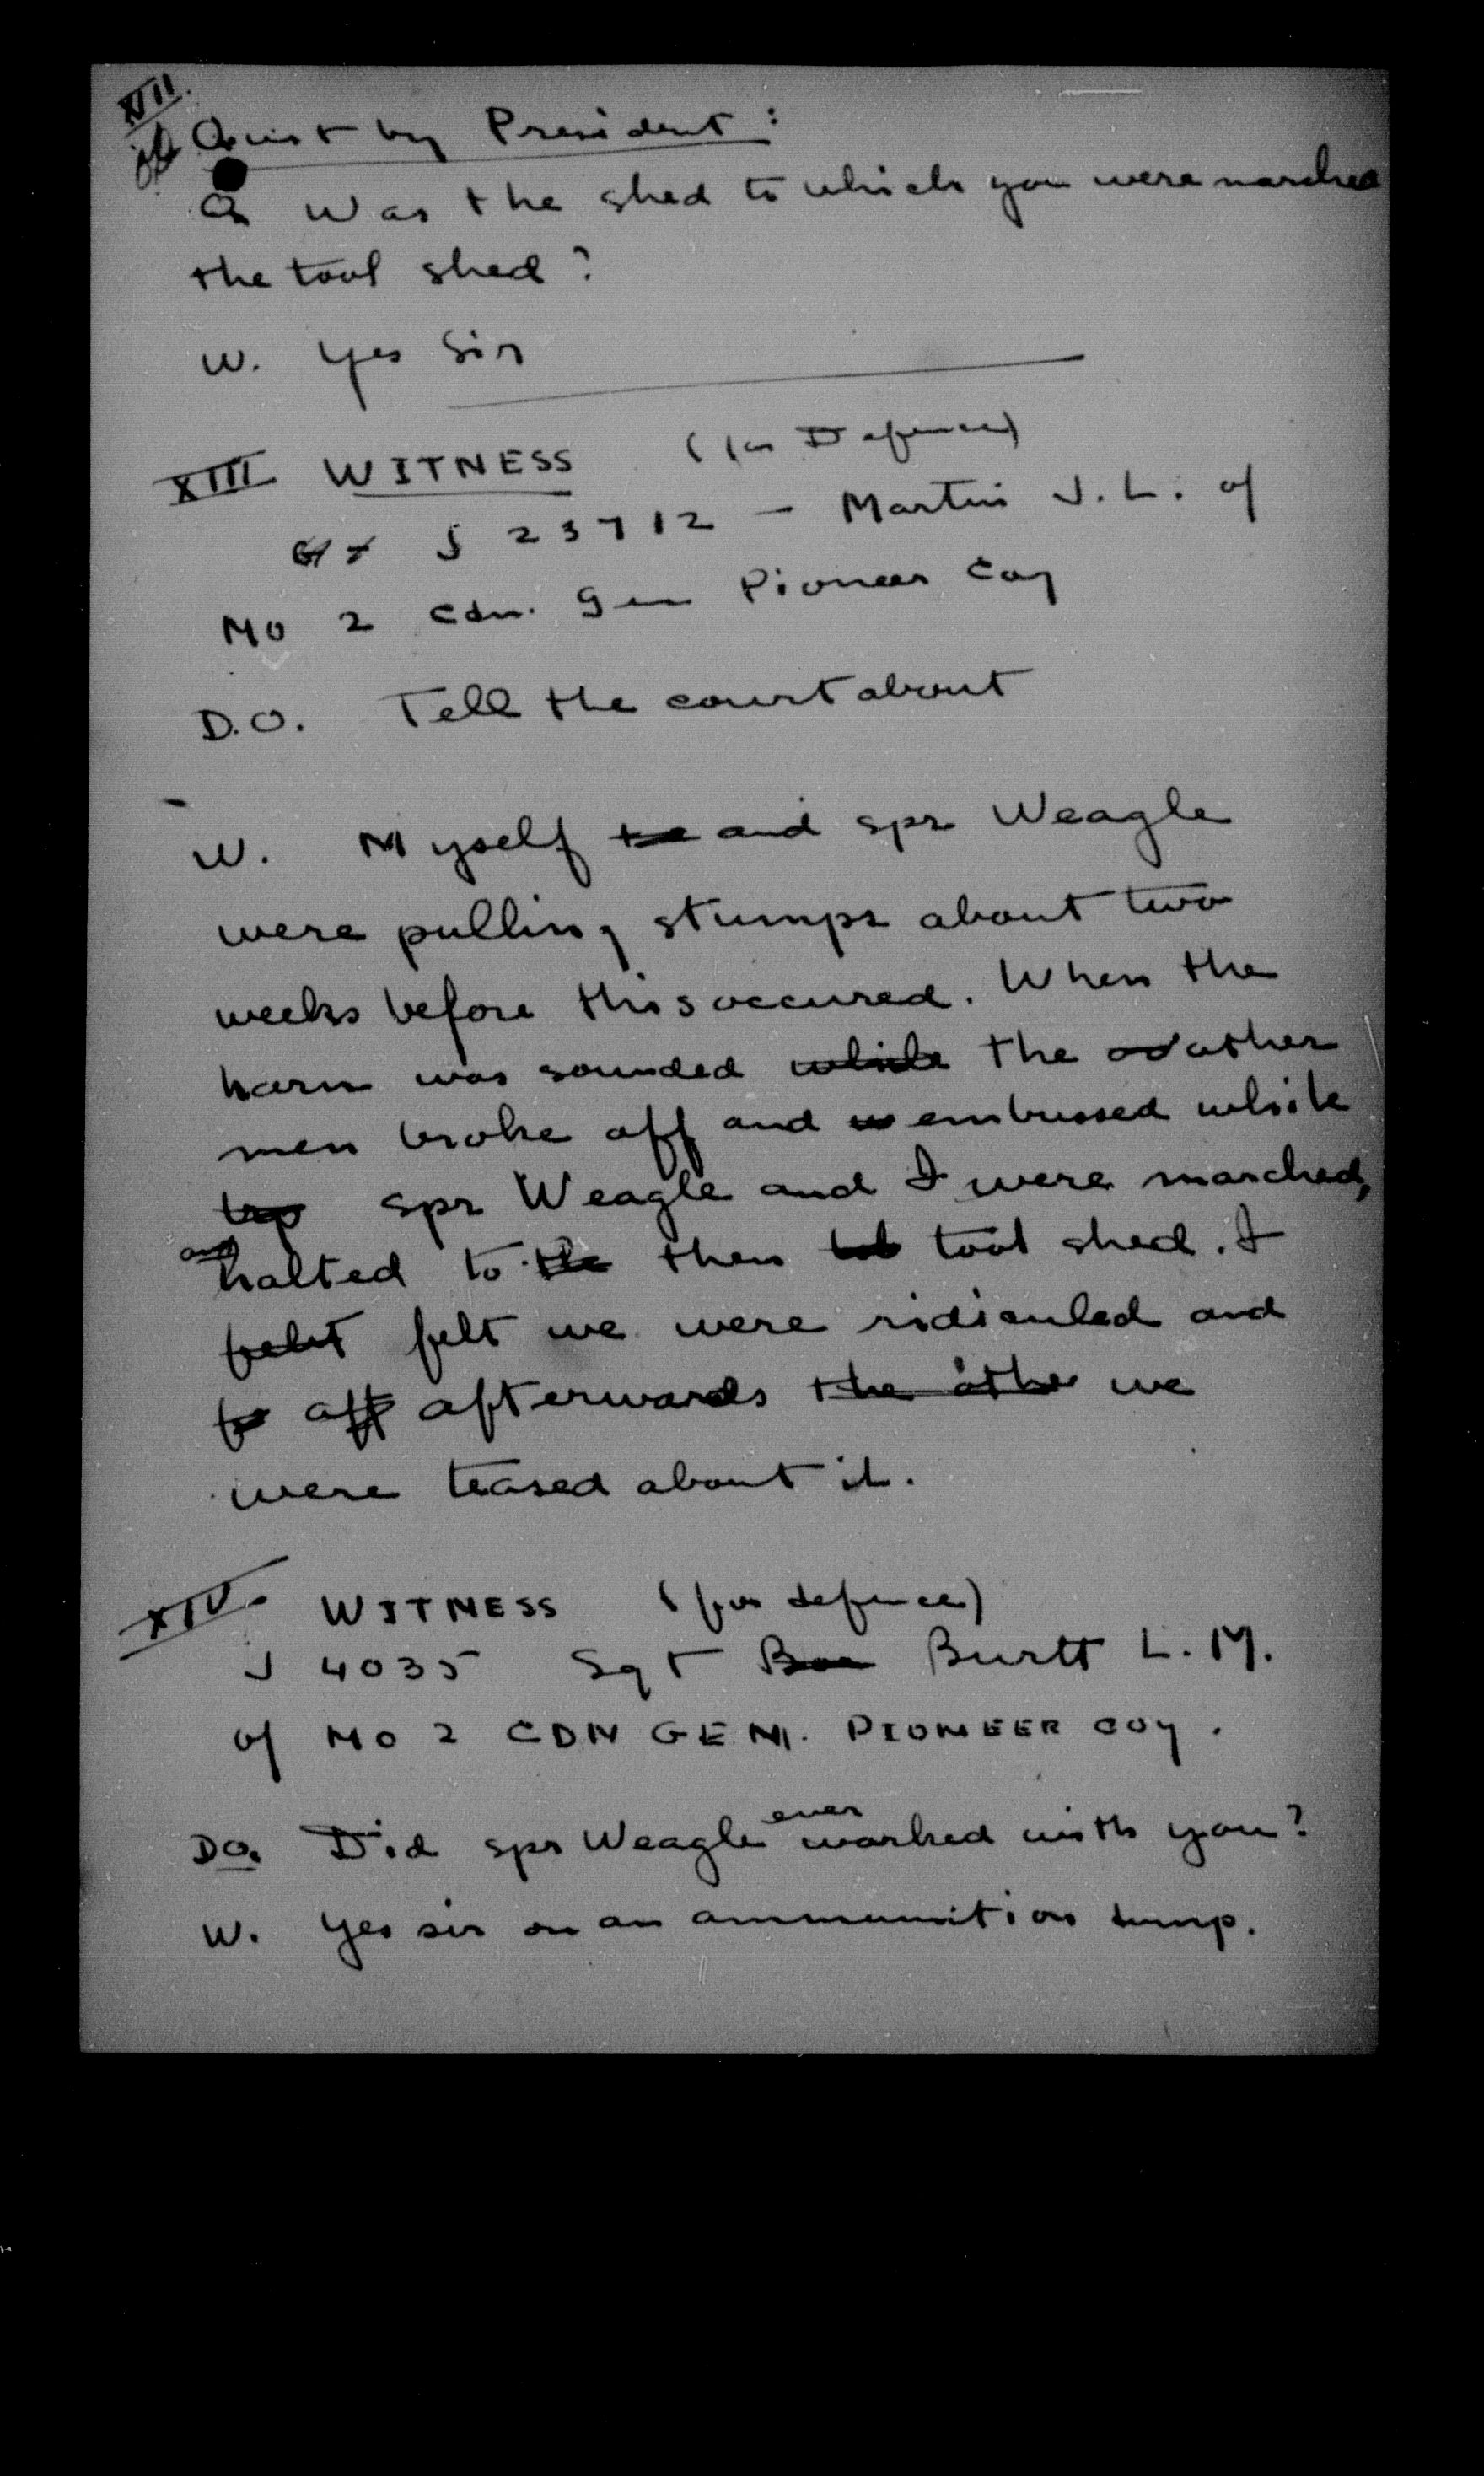 XII
Quest by President:
Q Was the shed to which you were marched
the tool shed?
W. Yes Sir
XIII WITNESS (for Defence)
J 23712 - Martin J.L. of
No 2 Cdn. Gen Pioneer Coy
D.O. Tell the court about
W. Myself and spr Weagle
were pulling stumps about two
weeks before this occured. When the
horn was sounded while the other
men broke off and embussed while
spr Weagle and I were marched,
and
halted to the then tool shed. I
felt felt we were ridiculed and
aff afterwards the other we
were teased about it.
XIV. WITNESS (for defence)
J 4035 Sgt Burtt L.M.
of No 2 CDN GEN. PIONEER COY.
ever
DO. Did spr Weagle worked with you?
W. Yes sir on an ammunition dump.